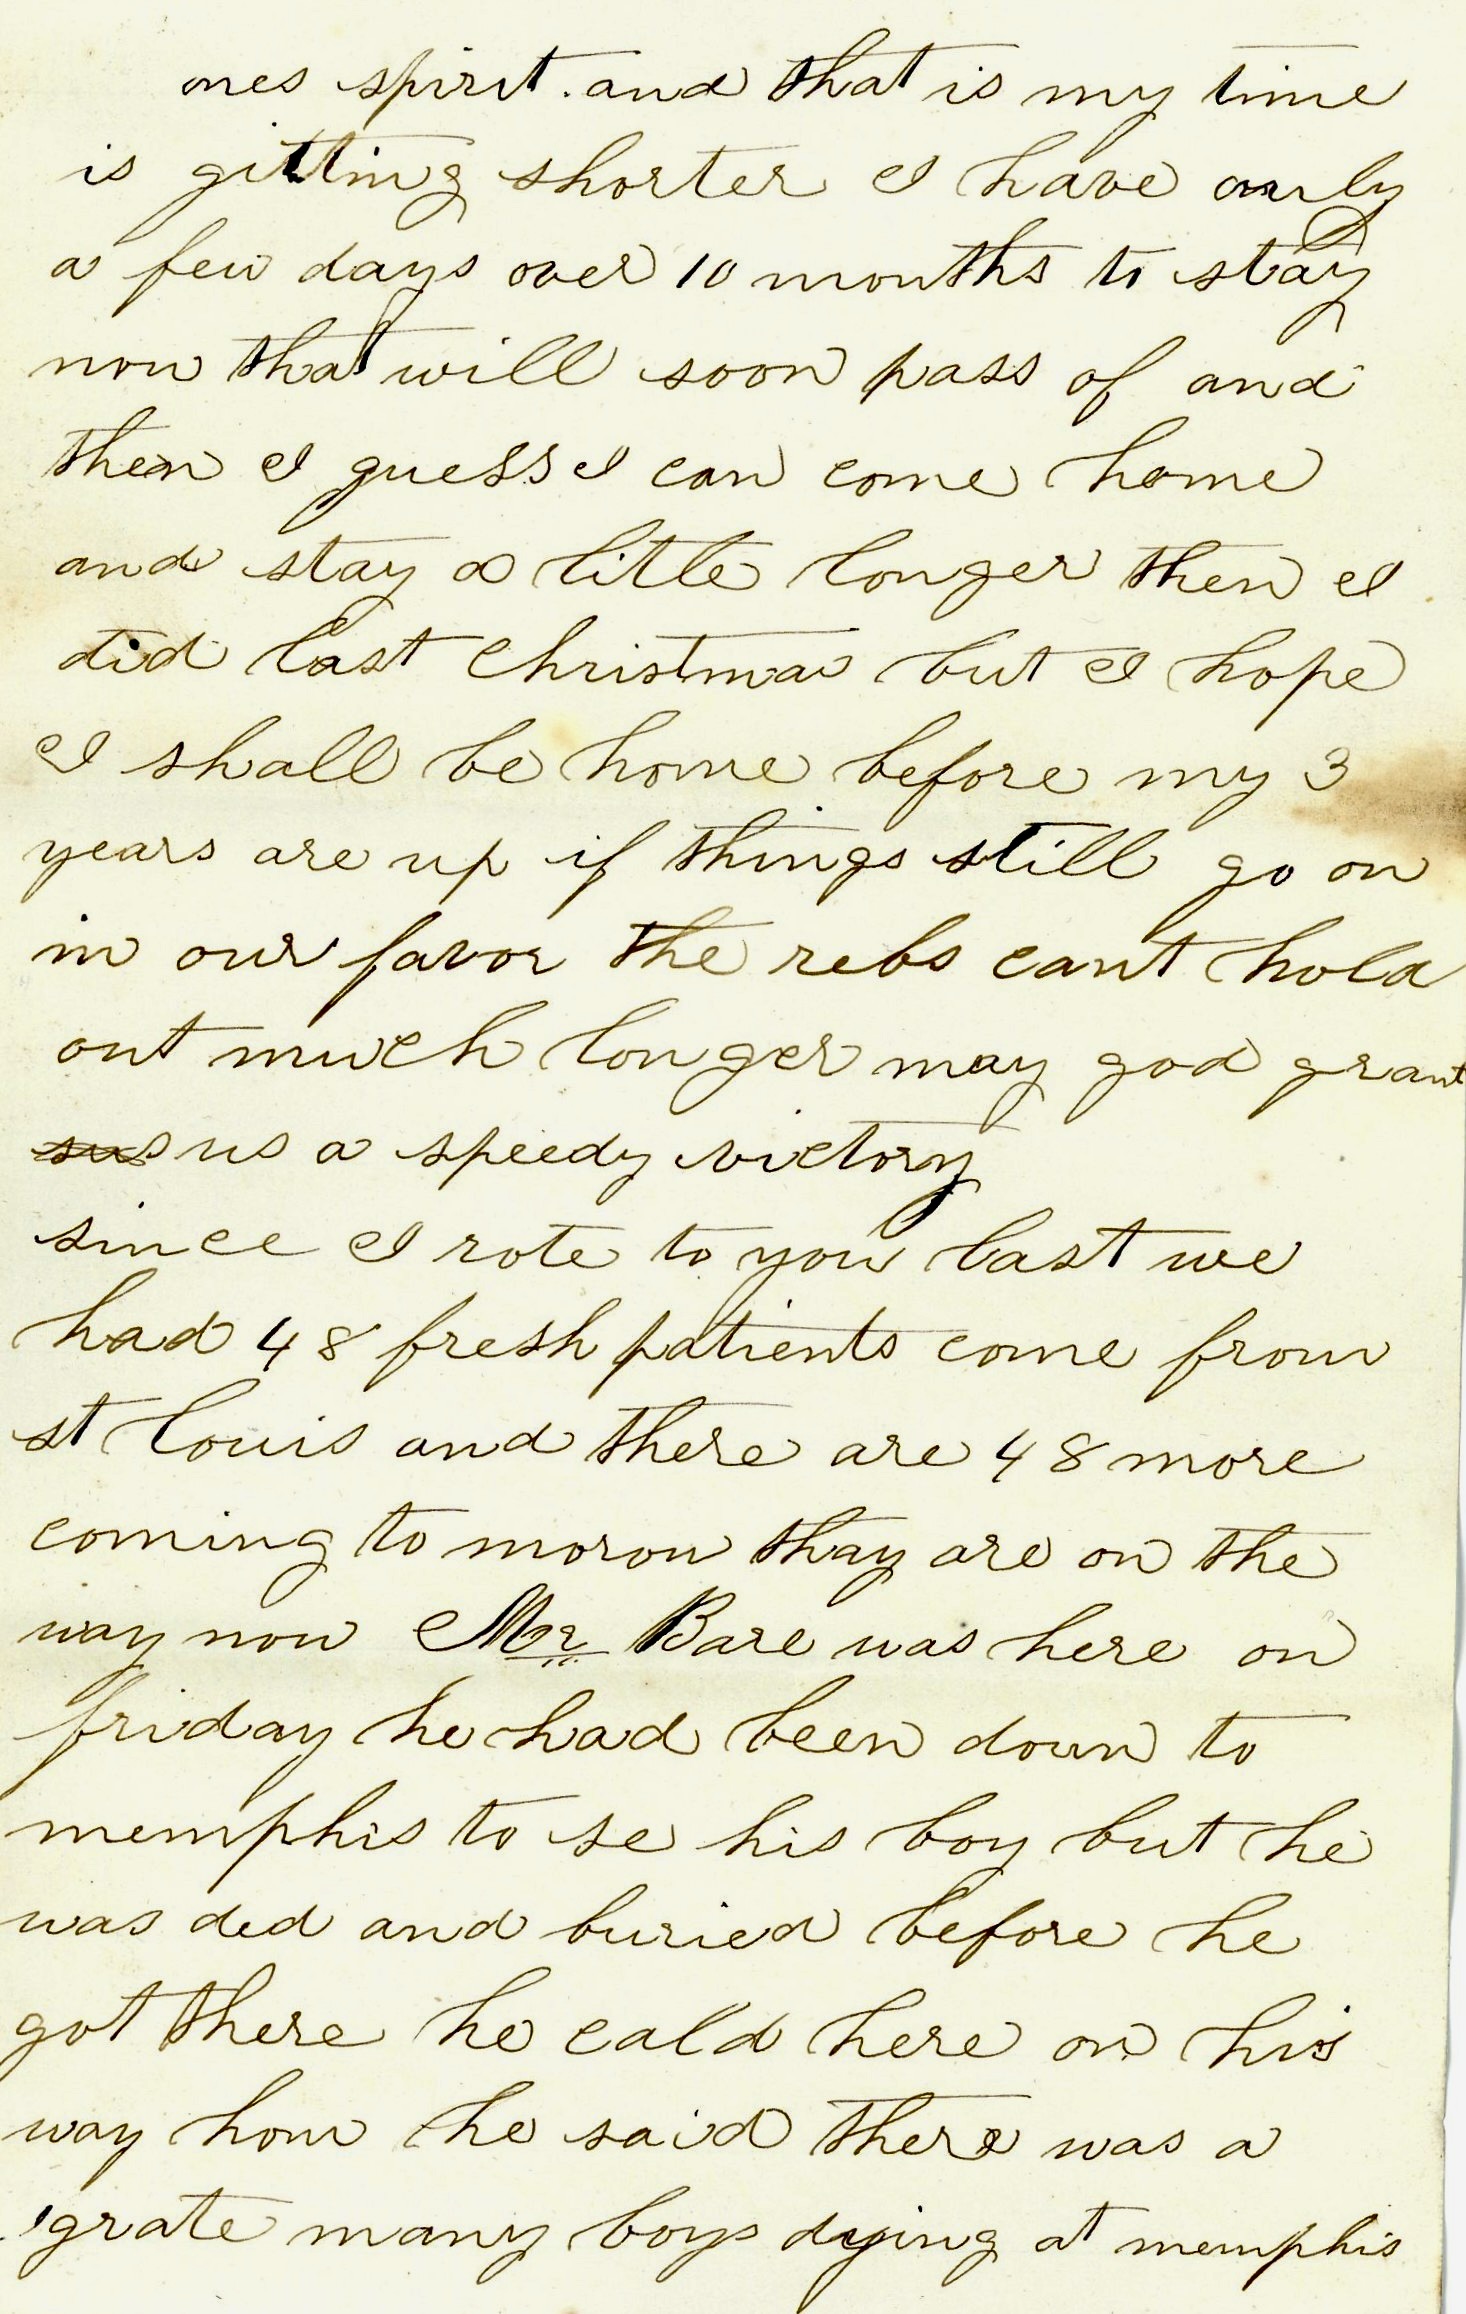 ones spirit. and that is my time
is gitting shorter I have only
a few days over 10 months to stay
now that will soon pass of and
then I guess I can come home
and stay a little longer then I
did last Christmas but I hope
I shall be home before my 3
years are up if things still go on
in our favor the rebs cant hold
out much longer may god grant
us a speedy victory
since I rote to you last we
had 48 fresh patients come from
st Louis and there are 48 more
coming to morow thay are on the
way now Mr Bare was here on
friday he had been down to
memphis to se his boy but he
was ded and buried before he
got there he cald here on his
way hom he said there was a
grate many boys dying at memphis